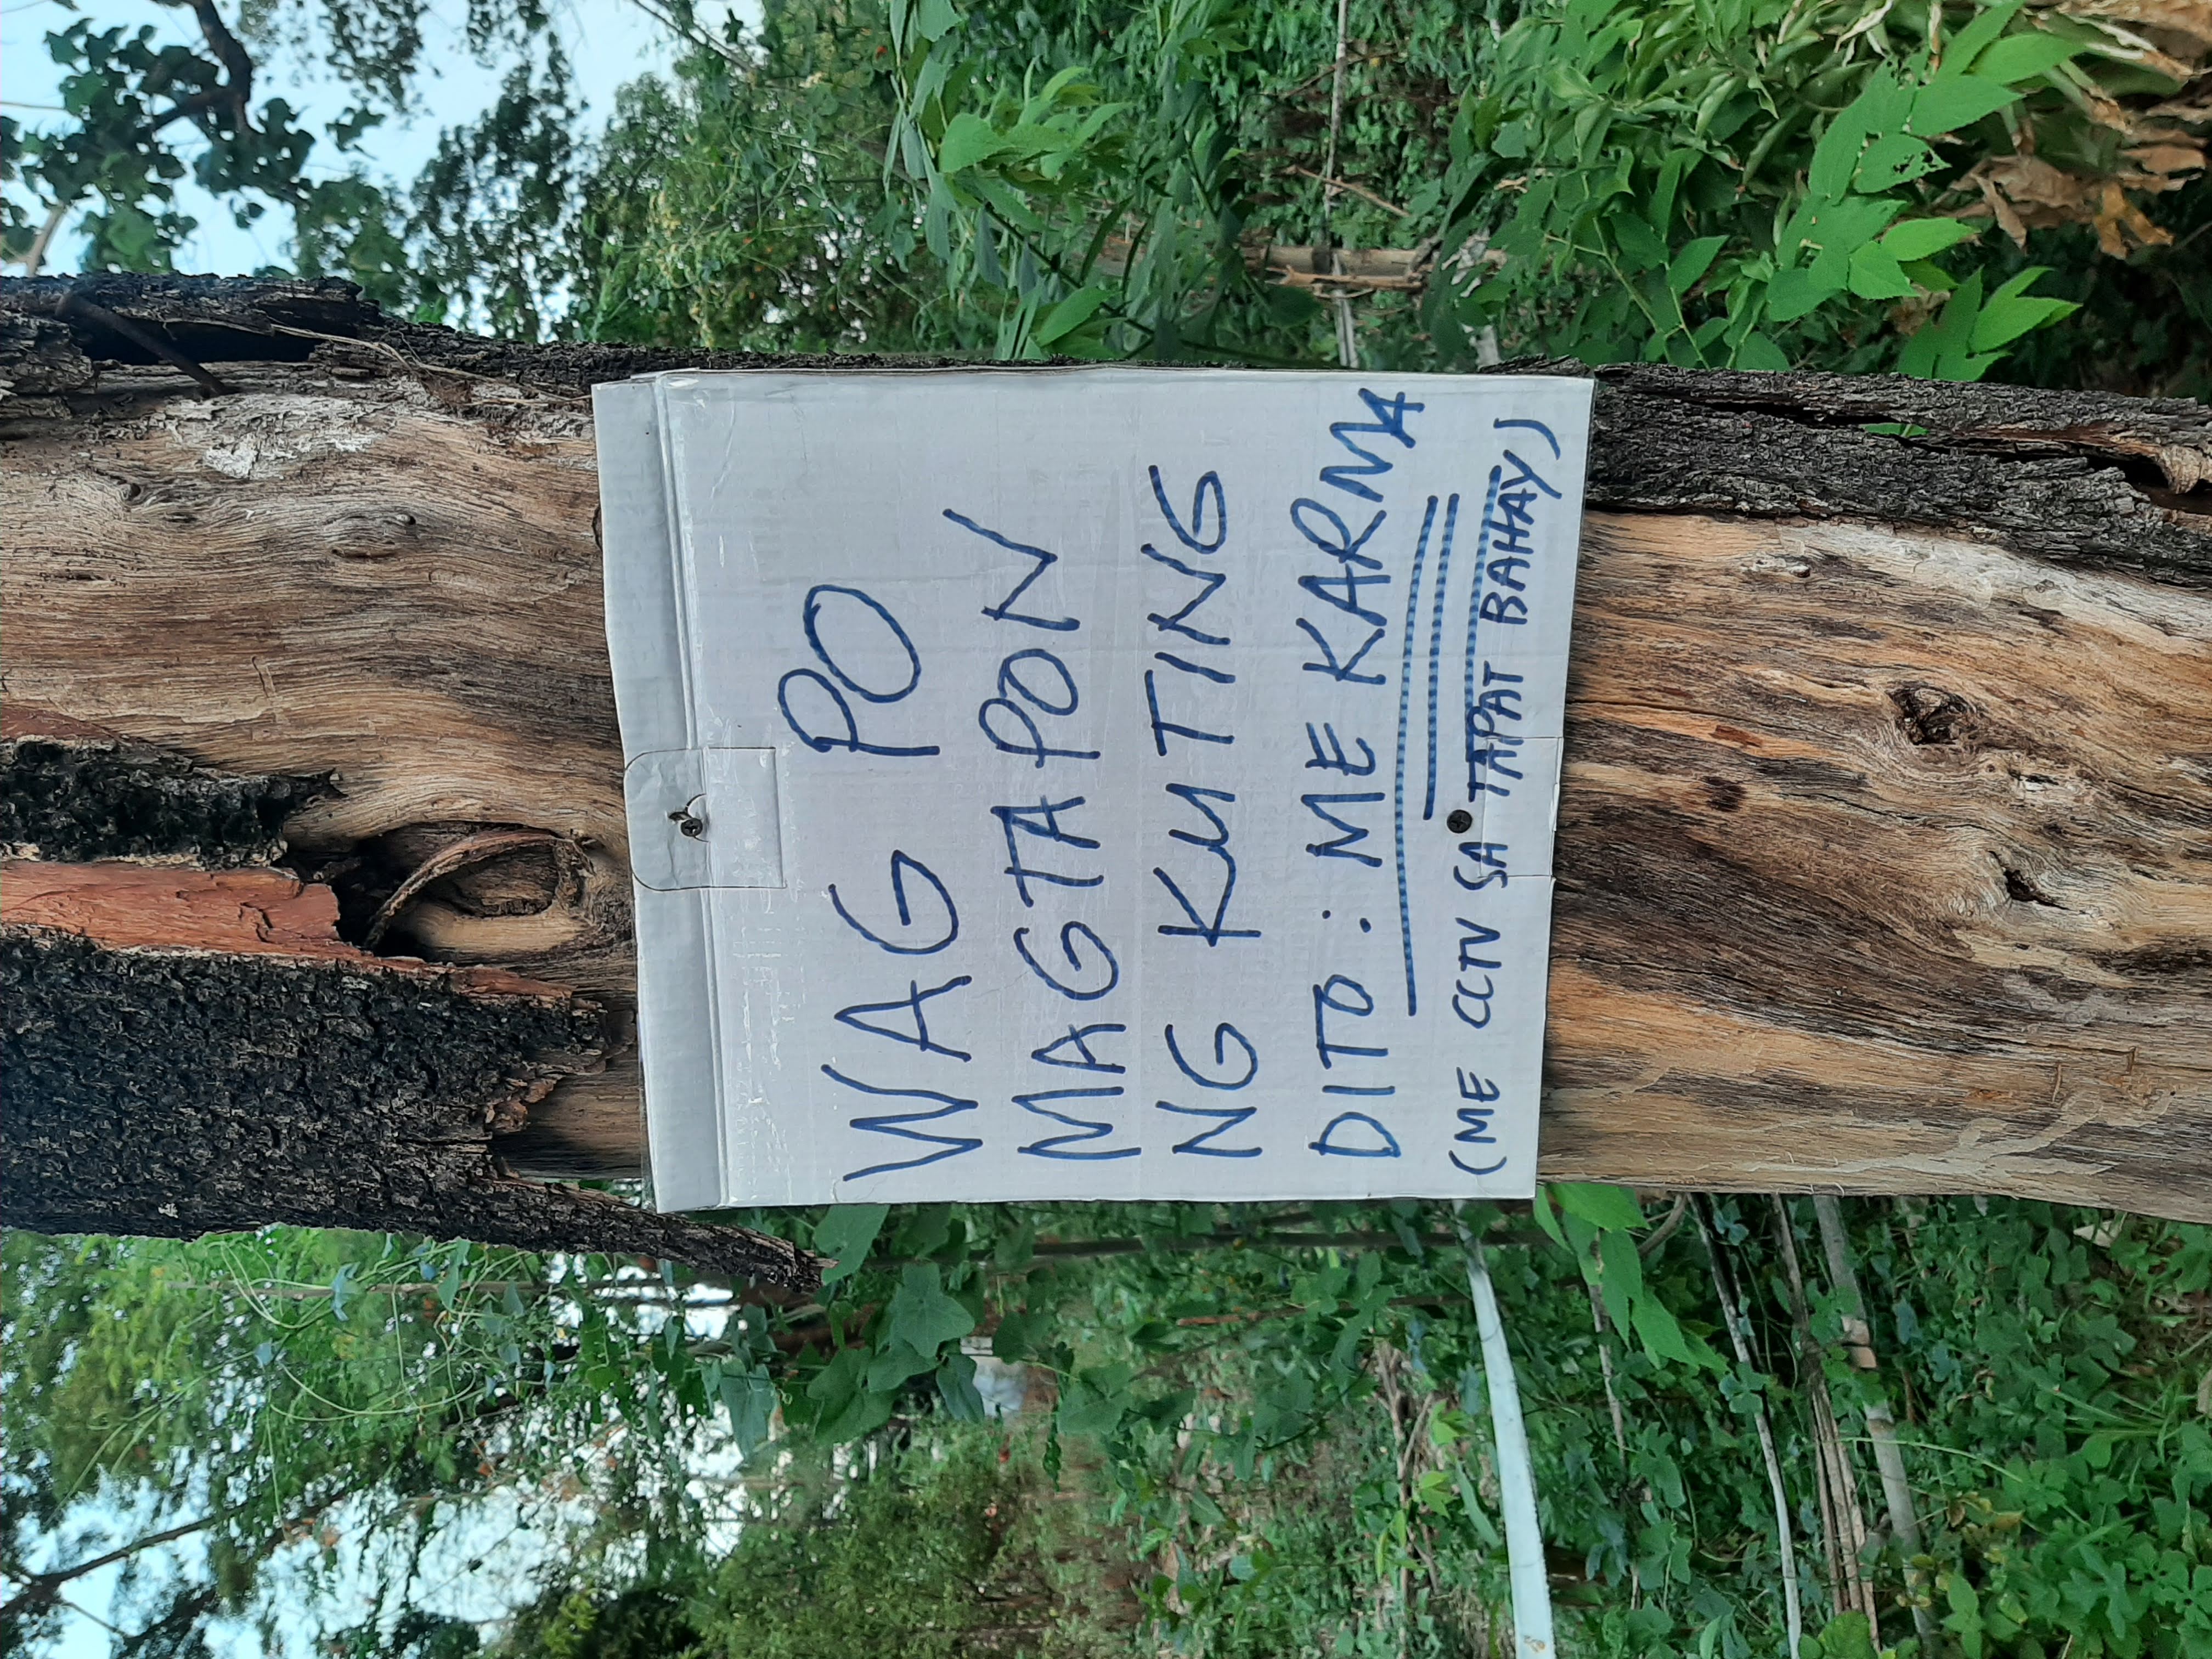 WAG PO
MAGTAPON
NG KUTING
DITO : ME KARMA
(ME CCTV SA TAPAT BAHAY)